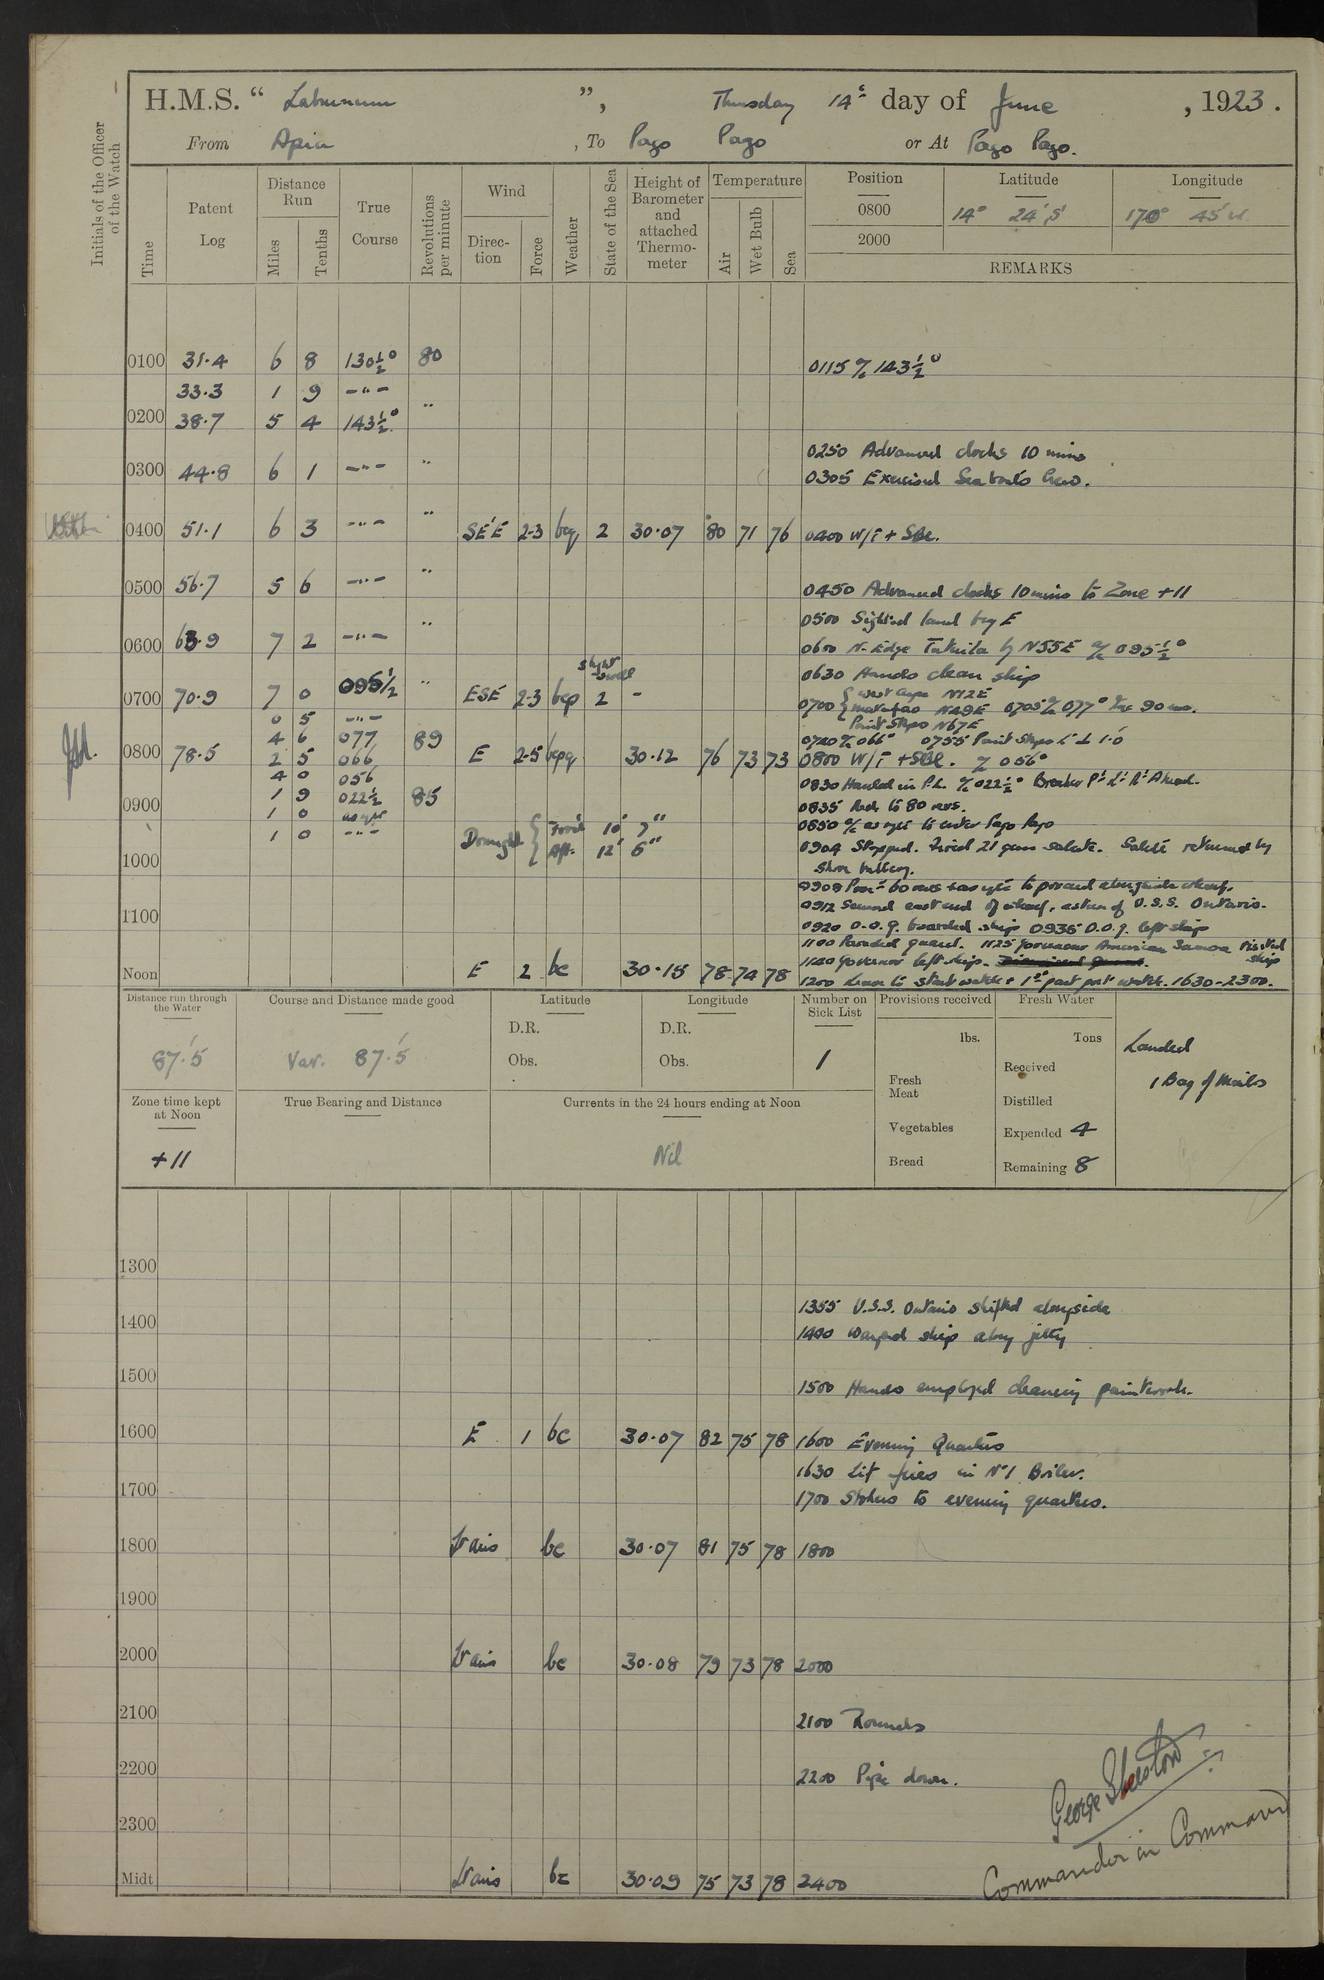 H.M.S. “ Laburnum ”, Thursday 14th day of June , 1923.
From Apia , To Pago Pago or At Pago Pago.
Initials of the Officer of the Watch
Time
Patent Log
Distance Run
Miles
Tenths
True Course
Revolutions per minute
Wind
Direc-tion
Force
Weather
State of the Sea
Height of Barometer and attached Thermo-meter
Temperature
Air
Wet Bulb
Sea
Position Latitude Longitude
0800 14° 24' S 170° 45' W
2000
REMARKS
0100 31.4 6 8 130½° 80 0115 a/c 143½°
33.3 1 9 -"-
0200 38.7 5 4 143½° "
0250 Advanced clocks 10 mins
0300 44.8 6 1 -"- " 0305 Exercised Sea boats Crew.
0400 51.1 6 3 -"- " SE'E 2-3 bcq 2 30.07 80 71 76 0400 W/T + SBL.
0500 56.7 5 6 -"- " 0450 Advanced clocks 10 mins to Zone +11
0500 Sighted land brg E
0600 63.9 7 2 -"- " 0600 N. Edge Tutuila by N55E a/c 095½°
slight swell
0630 Hands clean ship
0700 70.9 7 0 095½ " ESE 2-3 bcp 2 - 0700 { West Cape N12E
Matafao N49E 0705 a/c 077° Inc 90 revs.
Point Steps N67E
0 5 -"-
4 6 077 89 0720 a/c 066° 0755 Point Steps L ⊥ 1.0
0800 78.5 2 5 066 E 2-5 bcpq 30.12 76 73 73 0800 W/T + SBL. a/c 056°
4 0 056 0830 Hauled in P.L. a/c 022½° Breaker Pt Lt Ho Ahead.
0900 1 9 022½ 85 0835 Red. to 80 revs.
1 0 as req 0850 a/c as req to enter Pago Pago
1 0 -"- Draught { Ford 10' 7"
Aft. 12' 6"
0904 Stopped. Fired 21 gun salute. Salute returned by
1000 shore battery.
0908 Proc'd 60 revs + as req to proceed alongside wharf.
1100 0912 Secured east end of wharf, astern of U.S.S. Ontario.
0920 O.O.G. boarded ship 0935 O.O.G. left ship
1100 Paraded guard. 1125 Governor American Samoa visited ship
1140 Governor left ship.
Noon E 2 bc 30.15 78 74 78 1200 Leave to start watch + 1st part port watch. 1630-2300.
Distance run through the Water
87.'5
Course and Distance made good
Var. 87.'5
Latitude
D.R.
Obs.
Longitude
D.R.
Obs.
Number on Sick List
1
Provisions received
lbs.
Fresh Meat
Vegetables
Bread
Fresh Water
Tons
Received
Distilled
Expended 4
Remaining 8
Landed
1 Bag of Mails
Zone time kept at Noon
+11
True Bearing and Distance
Currents in the 24 hours ending at Noon
Nil
1300
1355 U.S.S. Ontario shifted alongside
1400 1400 Warped ship along jetty
1500 1500 Hands employed cleaning paintwork.
1600 E 1 bc 30.07 82 75 78 1600 Evening Quarters
1630 Lit fires in No 1 Boiler.
1700 1700 Stokers to evening quarters.
1800 Lt airs bc 30.07 81 75 78 1800
1900
2000 Lt airs bc 30.08 79 73 78 2000
2100 2100 Rounds
2200 2200 Pipe down.
2300
George Sheaston
Commander in Command
Midt Lt airs bc 30.09 75 73 78 2400